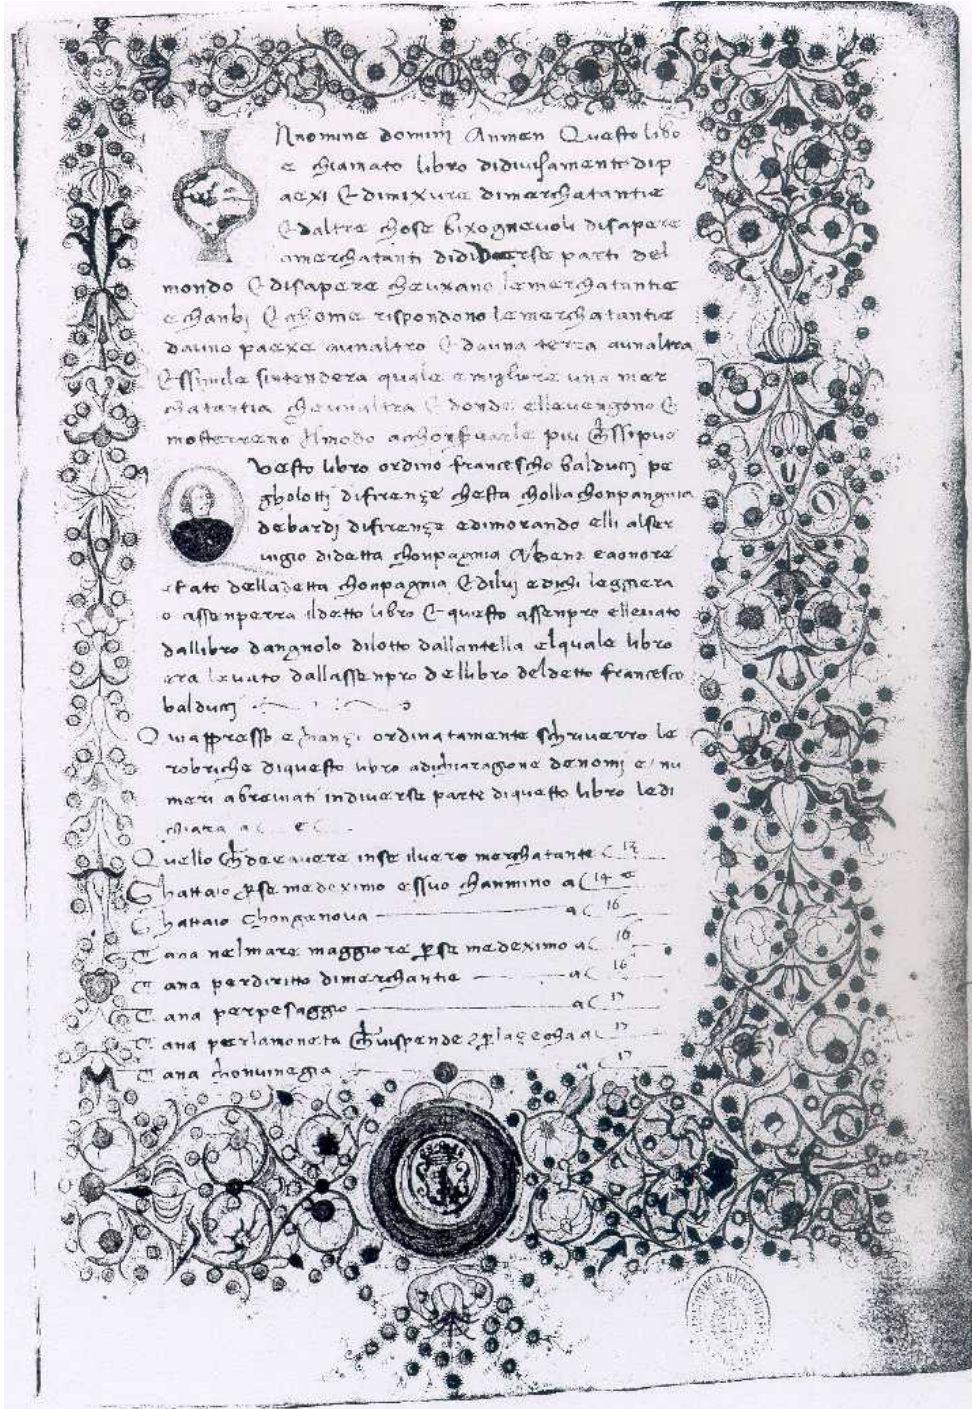 Nnomine domini Anmen Questo libo
e chiamato libro didivisamenti dip
aexi E dimixure dimerchatantie
E daltre chose bixognevoli disapere
amerchatanti didiverse parti del
mondo E disapere cheuxano lemerchatantie
echanbj E chome rispondono lemerchatantie
dauno paexe aunaltro E dauna terra aunaltra
Essimile sintendera quale emigliore una mer
chatantia cheunaltra E donde ellevengono E
mosterreno Ilmodo achonservarle piu chessipuo
vesto libro ordino francescho balducj pe
gholottj difirençe chesta chollachonpangnia
debardj difirençe edimorando elli alser
uigio didetta chonpagnia Abene eaonore
estato delladetta chonpagnia E dilui edichi leggiera
o assenperra ildetto libro E questo assenpro ellevato
dallibro dangnolo dilotto dallantella elquale libro
era levato dallassenpro dellibro deldetto francescho
balducj
Qui appresso e ordinatamente schriverro le
robriche diquesto libro adichiaragione denomj e nu
meri abreviati indiverse parti diquesto libro ledi
chiara a
Quello che deeavere inse iluero merchatante 13
Ghattaio per se medeximo essuo chanmino a 14
Ghattaio chongenova a 16
Tana nelmare maggiore per se medeximo a 16
Tana perdiritto dimerchantie a 16
Tana perpesaggio a 17
Tana perlamoneta chevispende a 17
Tana chonvinegia a 17